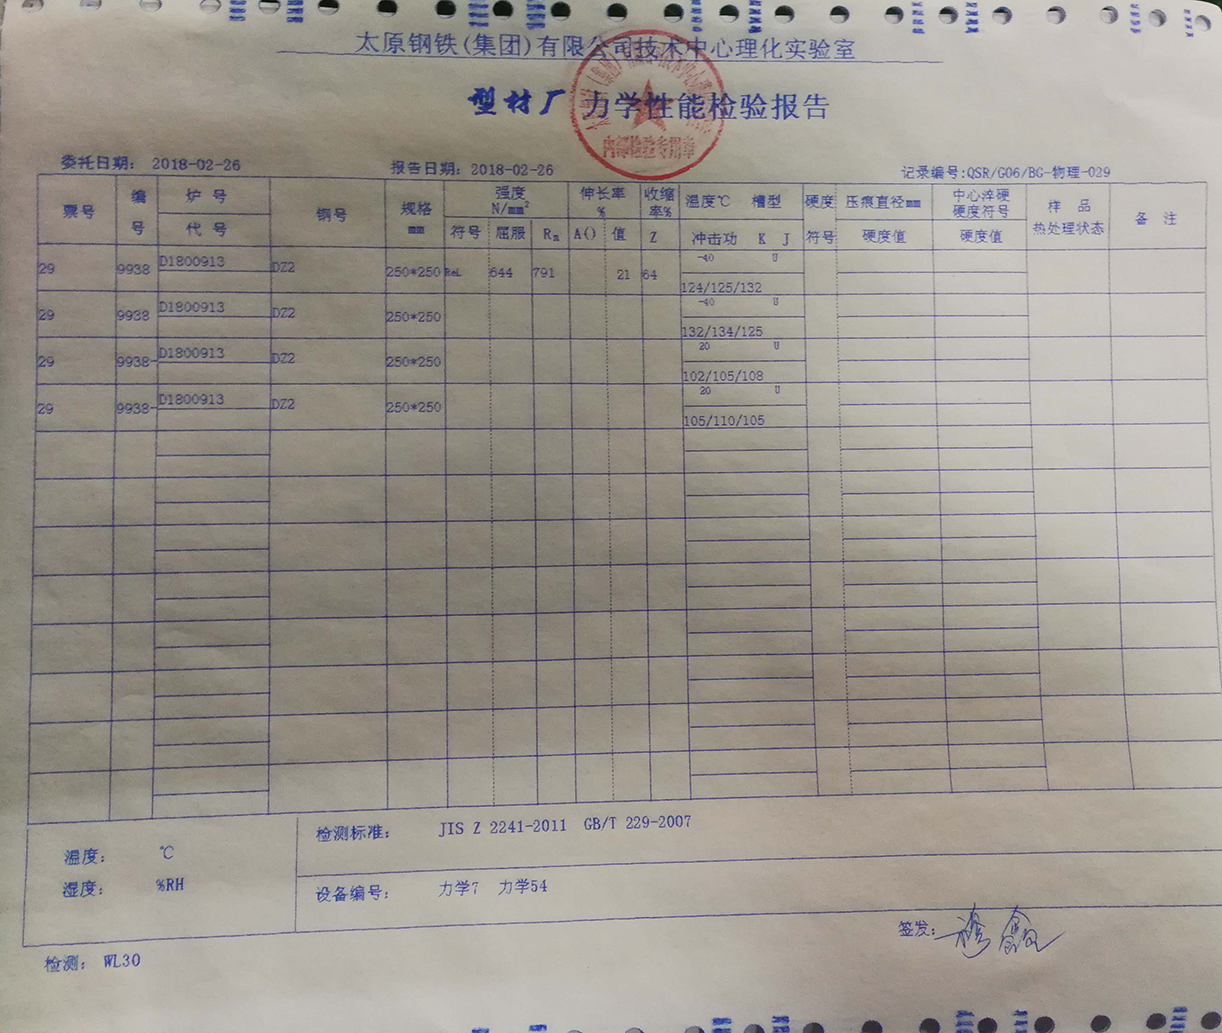 太原钢铁(集团)有限公司技术中心理化实验室
型材厂 力学性能检验报告
内部检验专用章
委托日期: 2018-02-26 报告日期: 2018-02-26 记录编号:QSR/G06/BG-物理-029
票号 编号 炉号 代号 钢号 规格 mm 强度 N/mm² 符号 屈服 Rm 伸长率 % A() 值 收缩率% Z 温度℃ 槽型 冲击功 K J 硬度符号 压痕直径mm 硬度值 中心淬硬硬度符号 硬度值 样品热处理状态 备注
29 9938 D1800913 DZ2 250*250 ReL 644 791 21 64 -40 U
124/125/132
29 9938 D1800913 DZ2 250*250 -40 U
132/134/125
29 9938- D1800913 DZ2 250*250 20 U
102/105/108
29 9938- D1800913 DZ2 250*250 20 U
105/110/105
检测标准: JIS Z 2241-2011 GB/T 229-2007
温度: ℃
湿度: %RH
设备编号: 力学7 力学54
签发:
检测: WL30